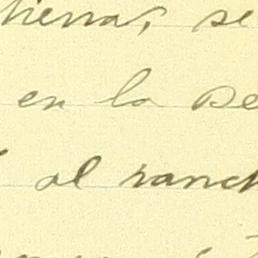 tierra, se
en la se
al ranch